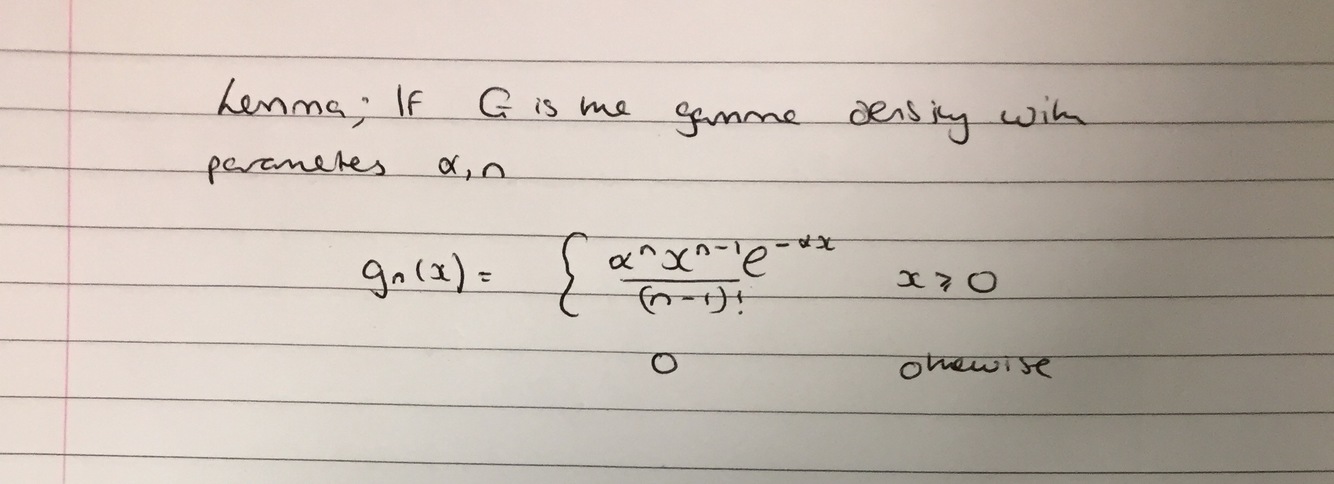 Lemma; If G is the gamma density with
parameters α, n
gₙ(x) = { αⁿxⁿ⁻¹e^(-αx) / (n-1)! x ⩾ 0
0 otherwise